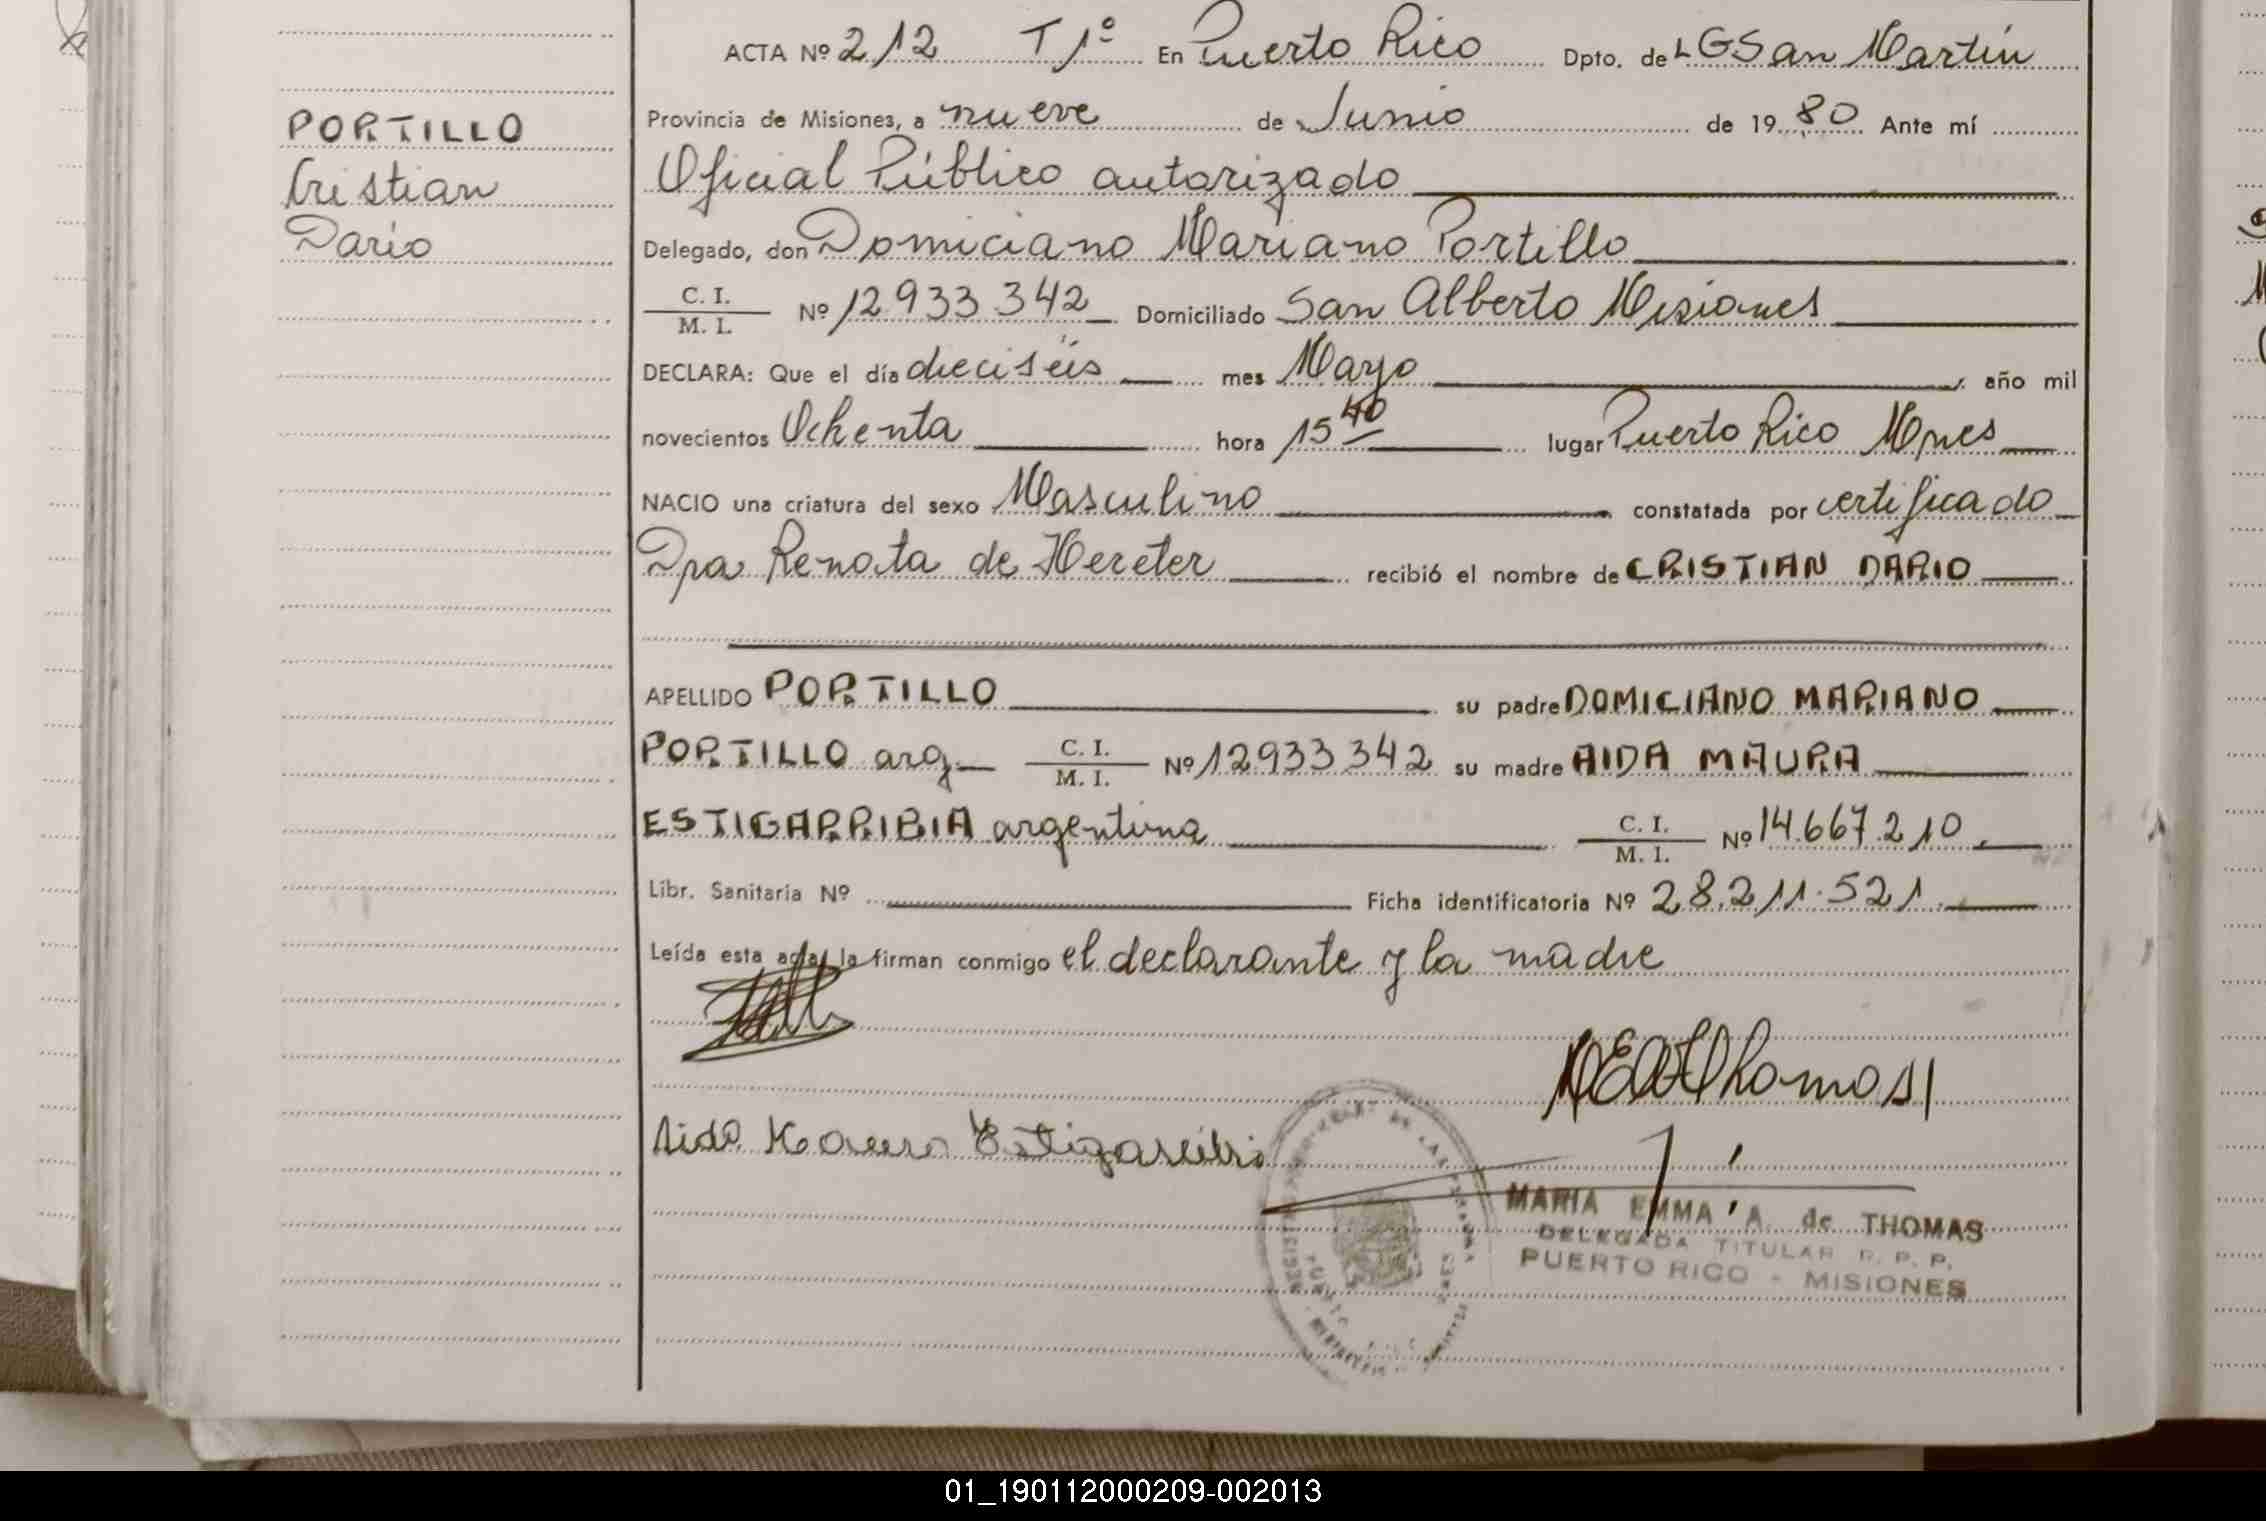 ACTA Nº 212 T 1º En Puerto Rico Dpto. de L G San Martín
PORTILLO
Cristian
Dario
Provincia de Misiones, a nueve de Junio de 19 80 Ante mí
Oficial Público autorizado
Delegado, don Domiciano Mariano Portillo
C. I. / M. I. Nº 12933342 Domiciliado San Alberto Misiones
DECLARA: Que el día dieciséis mes Mayo año mil
novecientos Ochenta hora 15 40 lugar Puerto Rico Mnes
NACIO una criatura del sexo Masculino constatada por certificado
Dra Renata de Hereter recibió el nombre de CRISTIAN DARIO
APELLIDO PORTILLO su padre DOMICIANO MARIANO
PORTILLO arg C. I. / M. I. Nº 12933342 su madre AIDA MAURA
ESTIGARRIBIA argentina C. I. / M. I. Nº 14.667.210.
Libr. Sanitaria Nº Ficha identificatoria Nº 28.211.521.
Leída esta acta, la firman conmigo el declarante y la madre
MEAThomas
Aida Maura Estigarribia
MARIA EMMA A. de THOMAS
DELEGADA TITULAR R. P. P.
PUERTO RICO - MISIONES
01_190112000209-002013